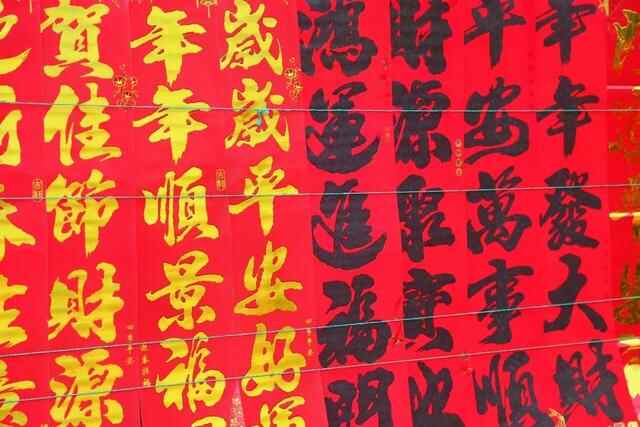 年年發大財
平安萬事順
財源
鴻運進福門
歲歲平安好運
年年順景福
賀佳節財源